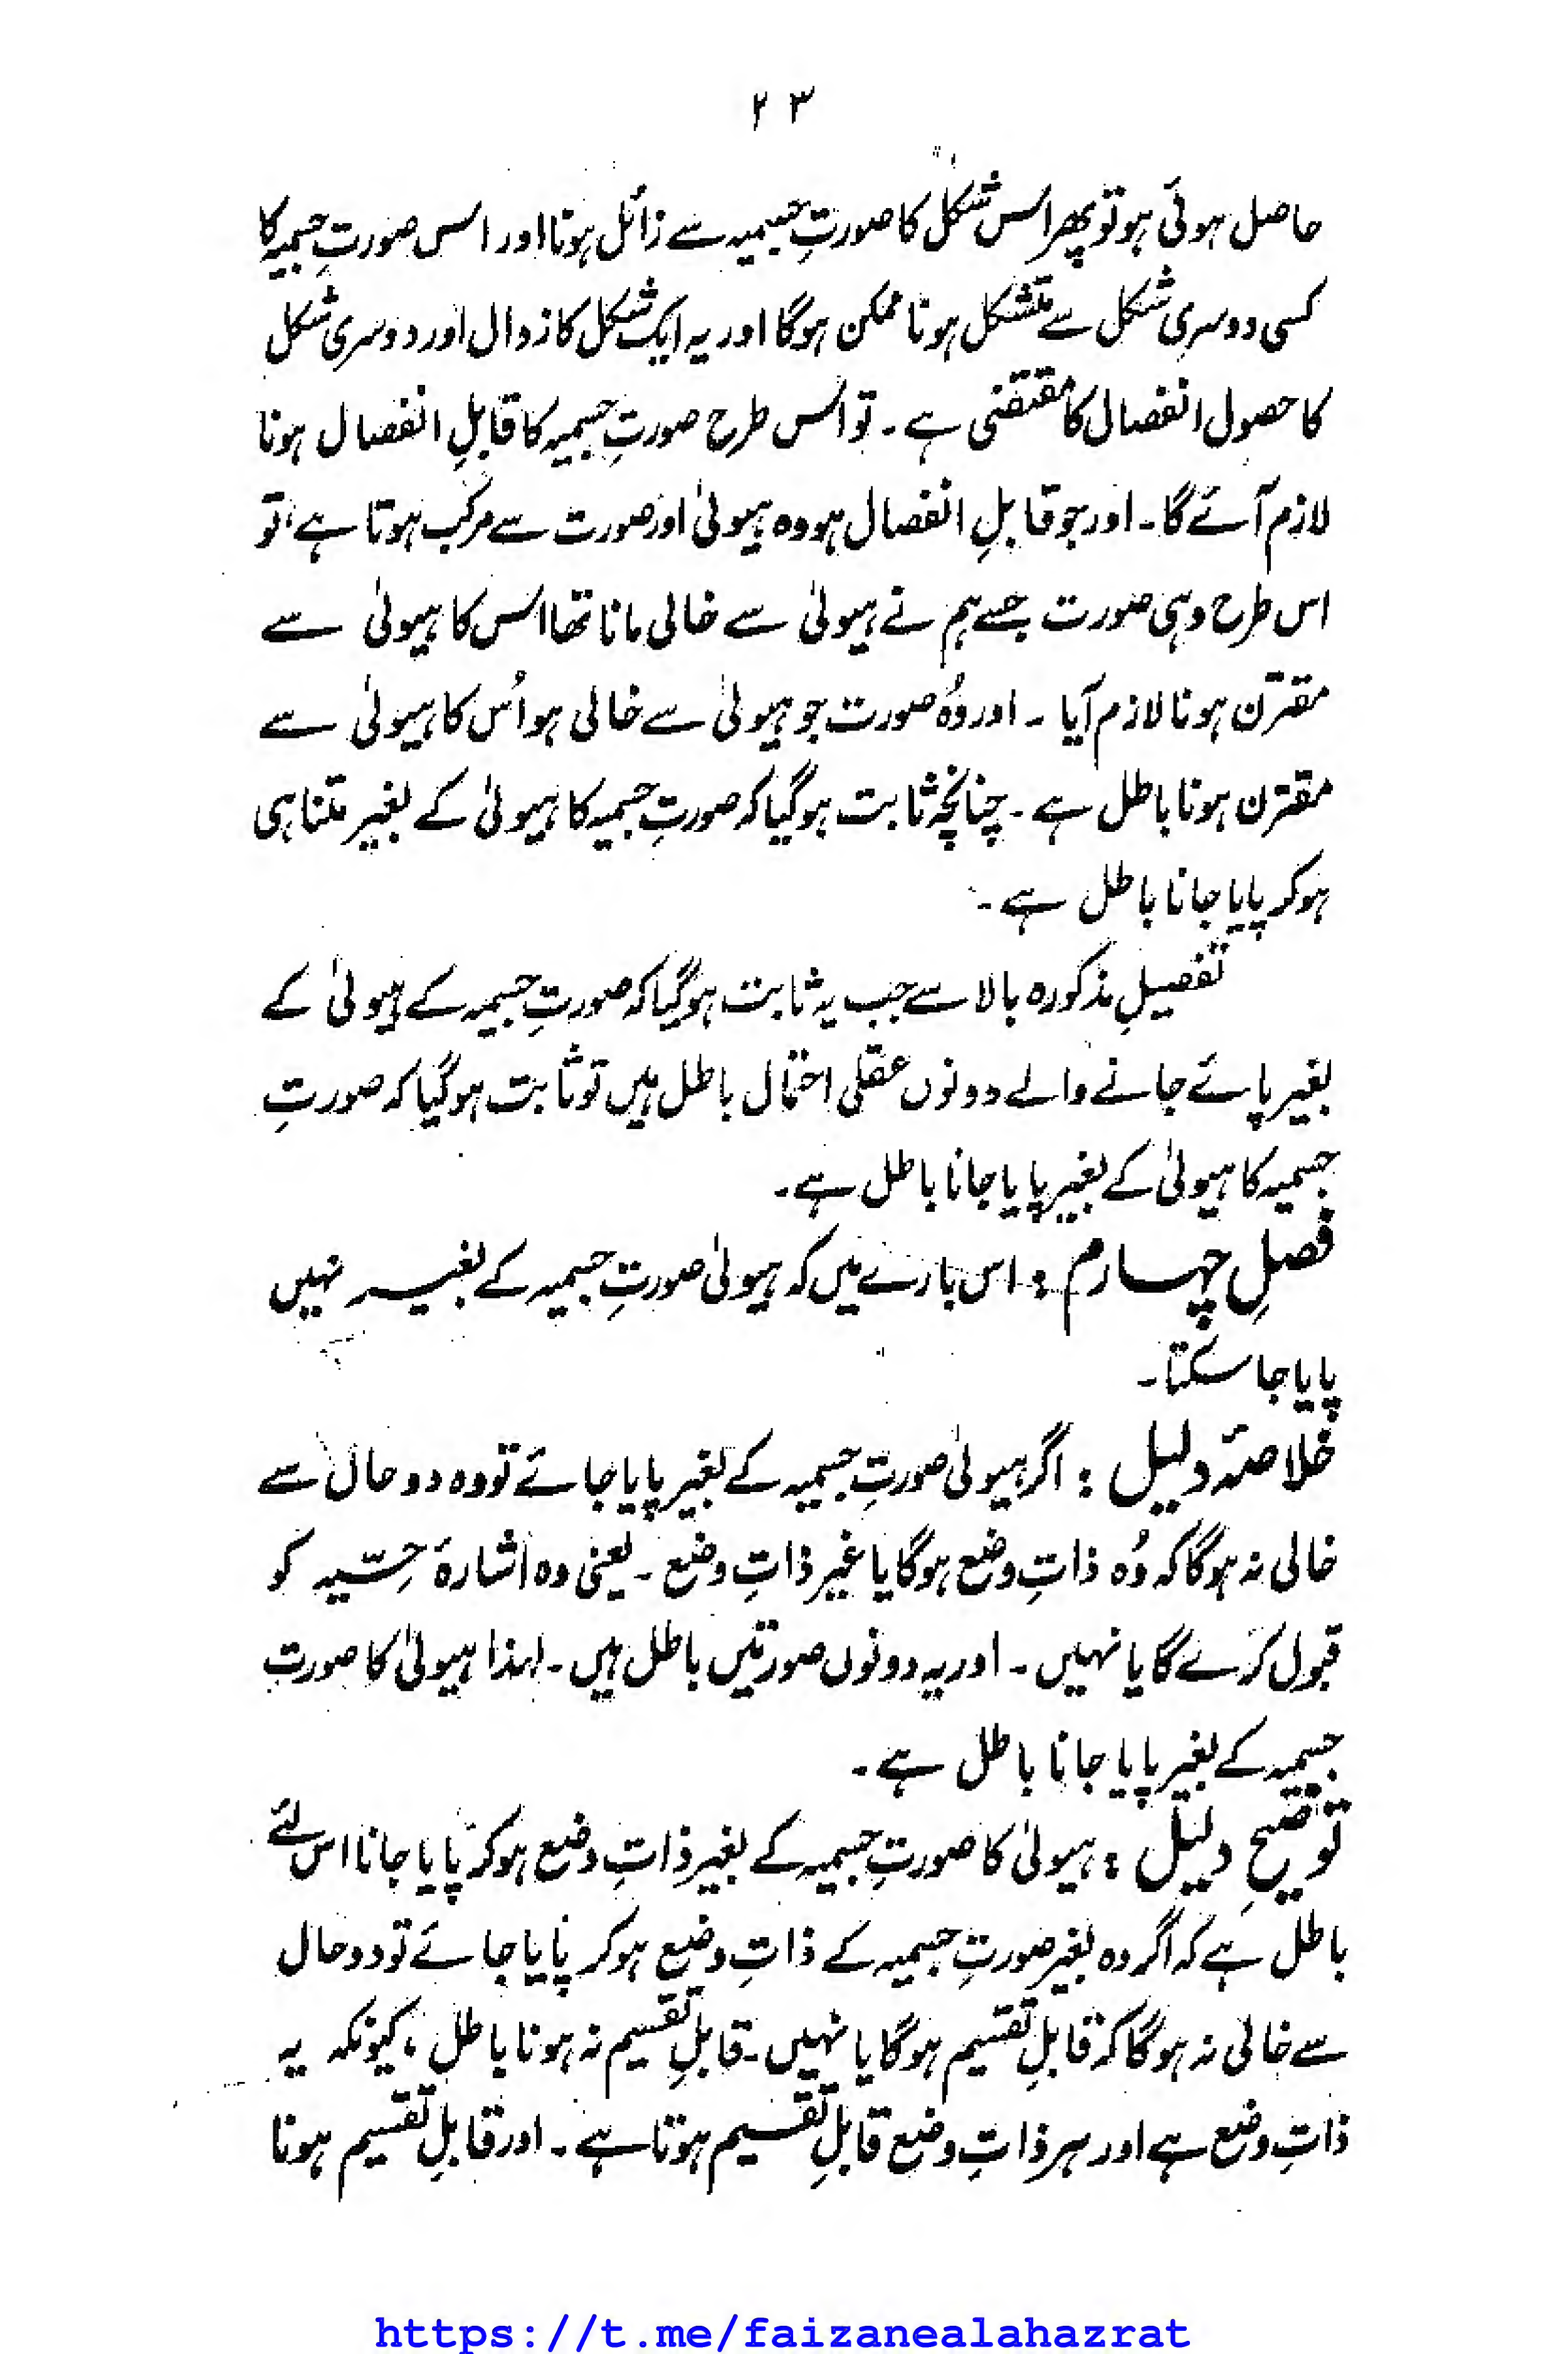 ۲۳
حاصل ہوئی ہو تو پھر اس شکل کا صورتِ جسمیہ سے زائل ہونا اور اس صورتِ جسمیہ کا
کسی دوسری شکل سے متشکل ہونا ممکن ہوگا اور یہ ایک شکل کا زوال اور دوسری شکل
کا حصول انفصال کا مقتضی ہے۔ تو اس طرح صورتِ جسمیہ کا قابلِ انفصال ہونا
لازم آئے گا۔ اور جو قابلِ انفصال ہو وہ ہیولیٰ اور صورت سے مرکب ہوتا ہے، تو
اس طرح وہی صورت جسے ہم نے ہیولیٰ سے خالی مانا تھا اس کا ہیولیٰ سے
مقترن ہونا لازم آیا ۔ اور وُہ صورت جو ہیولیٰ سے خالی ہو اُس کا ہیولیٰ سے
مقترن ہونا باطل ہے ۔ چنانچہ ثابت ہوگیا کہ صورتِ جسمیہ کا ہیولیٰ کے بغیر متناہی
ہو کر پایا جانا باطل ہے ۔
تفصیلِ مذکورہ بالا سے جب یہ ثابت ہوگیا کہ صورتِ جسمیہ کے ہیولیٰ کے
بغیر پائے جانے والے دونوں عقلی احتمال باطل ہیں تو ثابت ہوگیا کہ صورتِ
جسمیہ کا ہیولیٰ کے بغیر پایا جانا باطل ہے۔
فصلِ چہارم : اس بارے میں کہ ہیولیٰ صورتِ جسمیہ کے بغیر نہیں
پایا جا سکتا۔
خلاصۂ دلیل : اگر ہیولیٰ صورتِ جسمیہ کے بغیر پایا جائے تو وہ دو حال سے
خالی نہ ہوگا کہ وُہ ذاتِ وضع ہوگا یا غیر ذاتِ وضع ۔ یعنی وہ اشارۂ حِسّیہ کو
قبول کرے گا یا نہیں ۔ اور یہ دونوں صورتیں باطل ہیں ۔ لہٰذا ہیولیٰ کا صورت
جسمیہ کے بغیر پایا جانا باطل ہے ۔
توضیحِ دلیل : ہیولیٰ کا صورتِ جسمیہ کے بغیر ذاتِ وضع ہو کر پایا جانا اس لئے
باطل ہے کہ اگر وہ بغیر صورتِ جسمیہ کے ذاتِ وضع ہو کر پایا جائے تو دو حال
سے خالی نہ ہوگا کہ قابلِ تقسیم ہوگا یا نہیں ۔ قابلِ تقسیم نہ ہونا باطل ، کیونکہ یہ
ذاتِ وضع ہے اور ہر ذاتِ وضع قابلِ تقسیم ہوتا ہے ۔ اور قابلِ تقسیم ہونا
https://t.me/faizanealahazrat